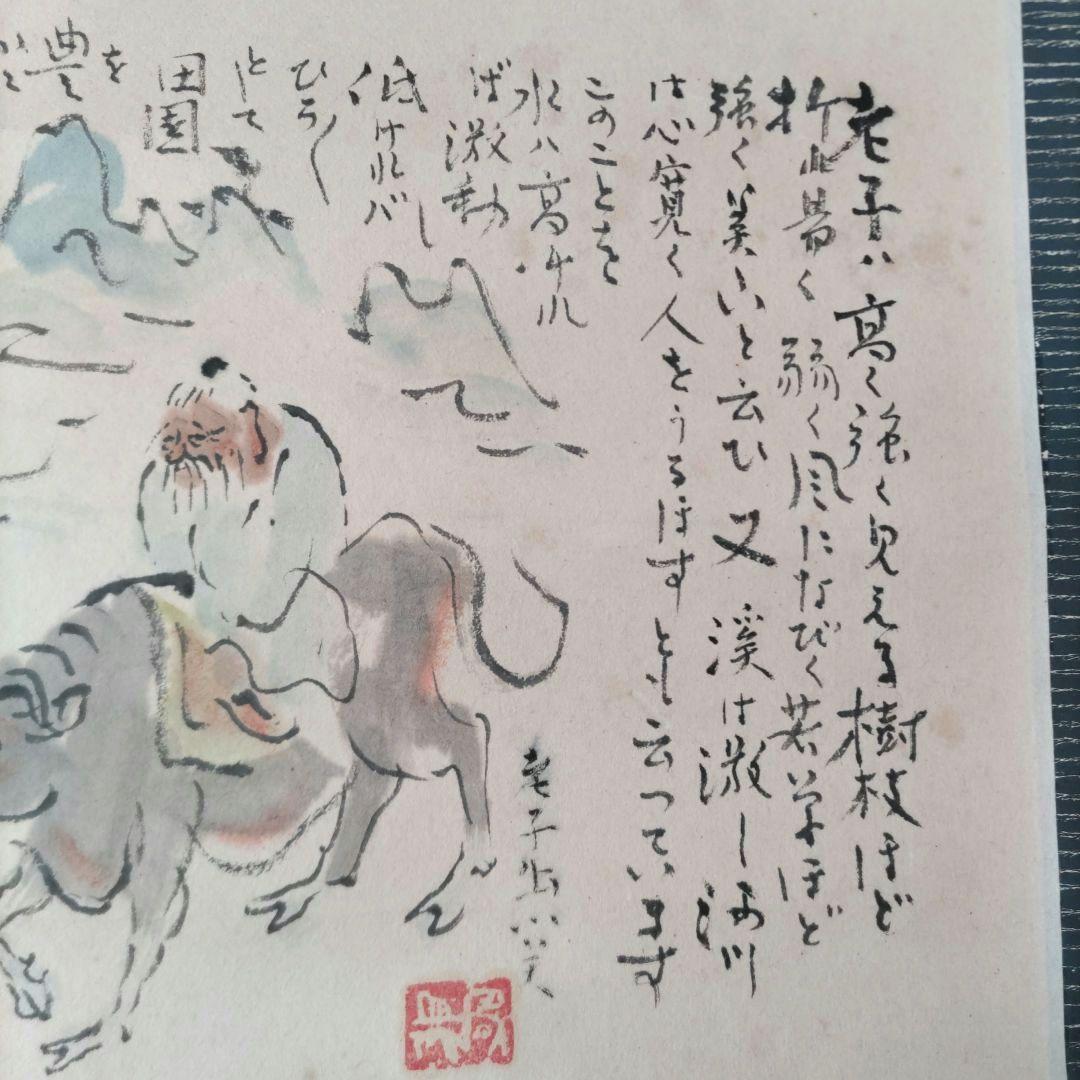 老子ハ高く強く見える樹枝ほど
折れ易く弱く風になびく若草ほど
強く美しいと云ひ又渓は激し河川
は心寛く人をうるほすとも云っています
このことを
水ハ高ケレ
ば激動し
低ければ
ひろ〲
として
田園
を
豊
老子出関